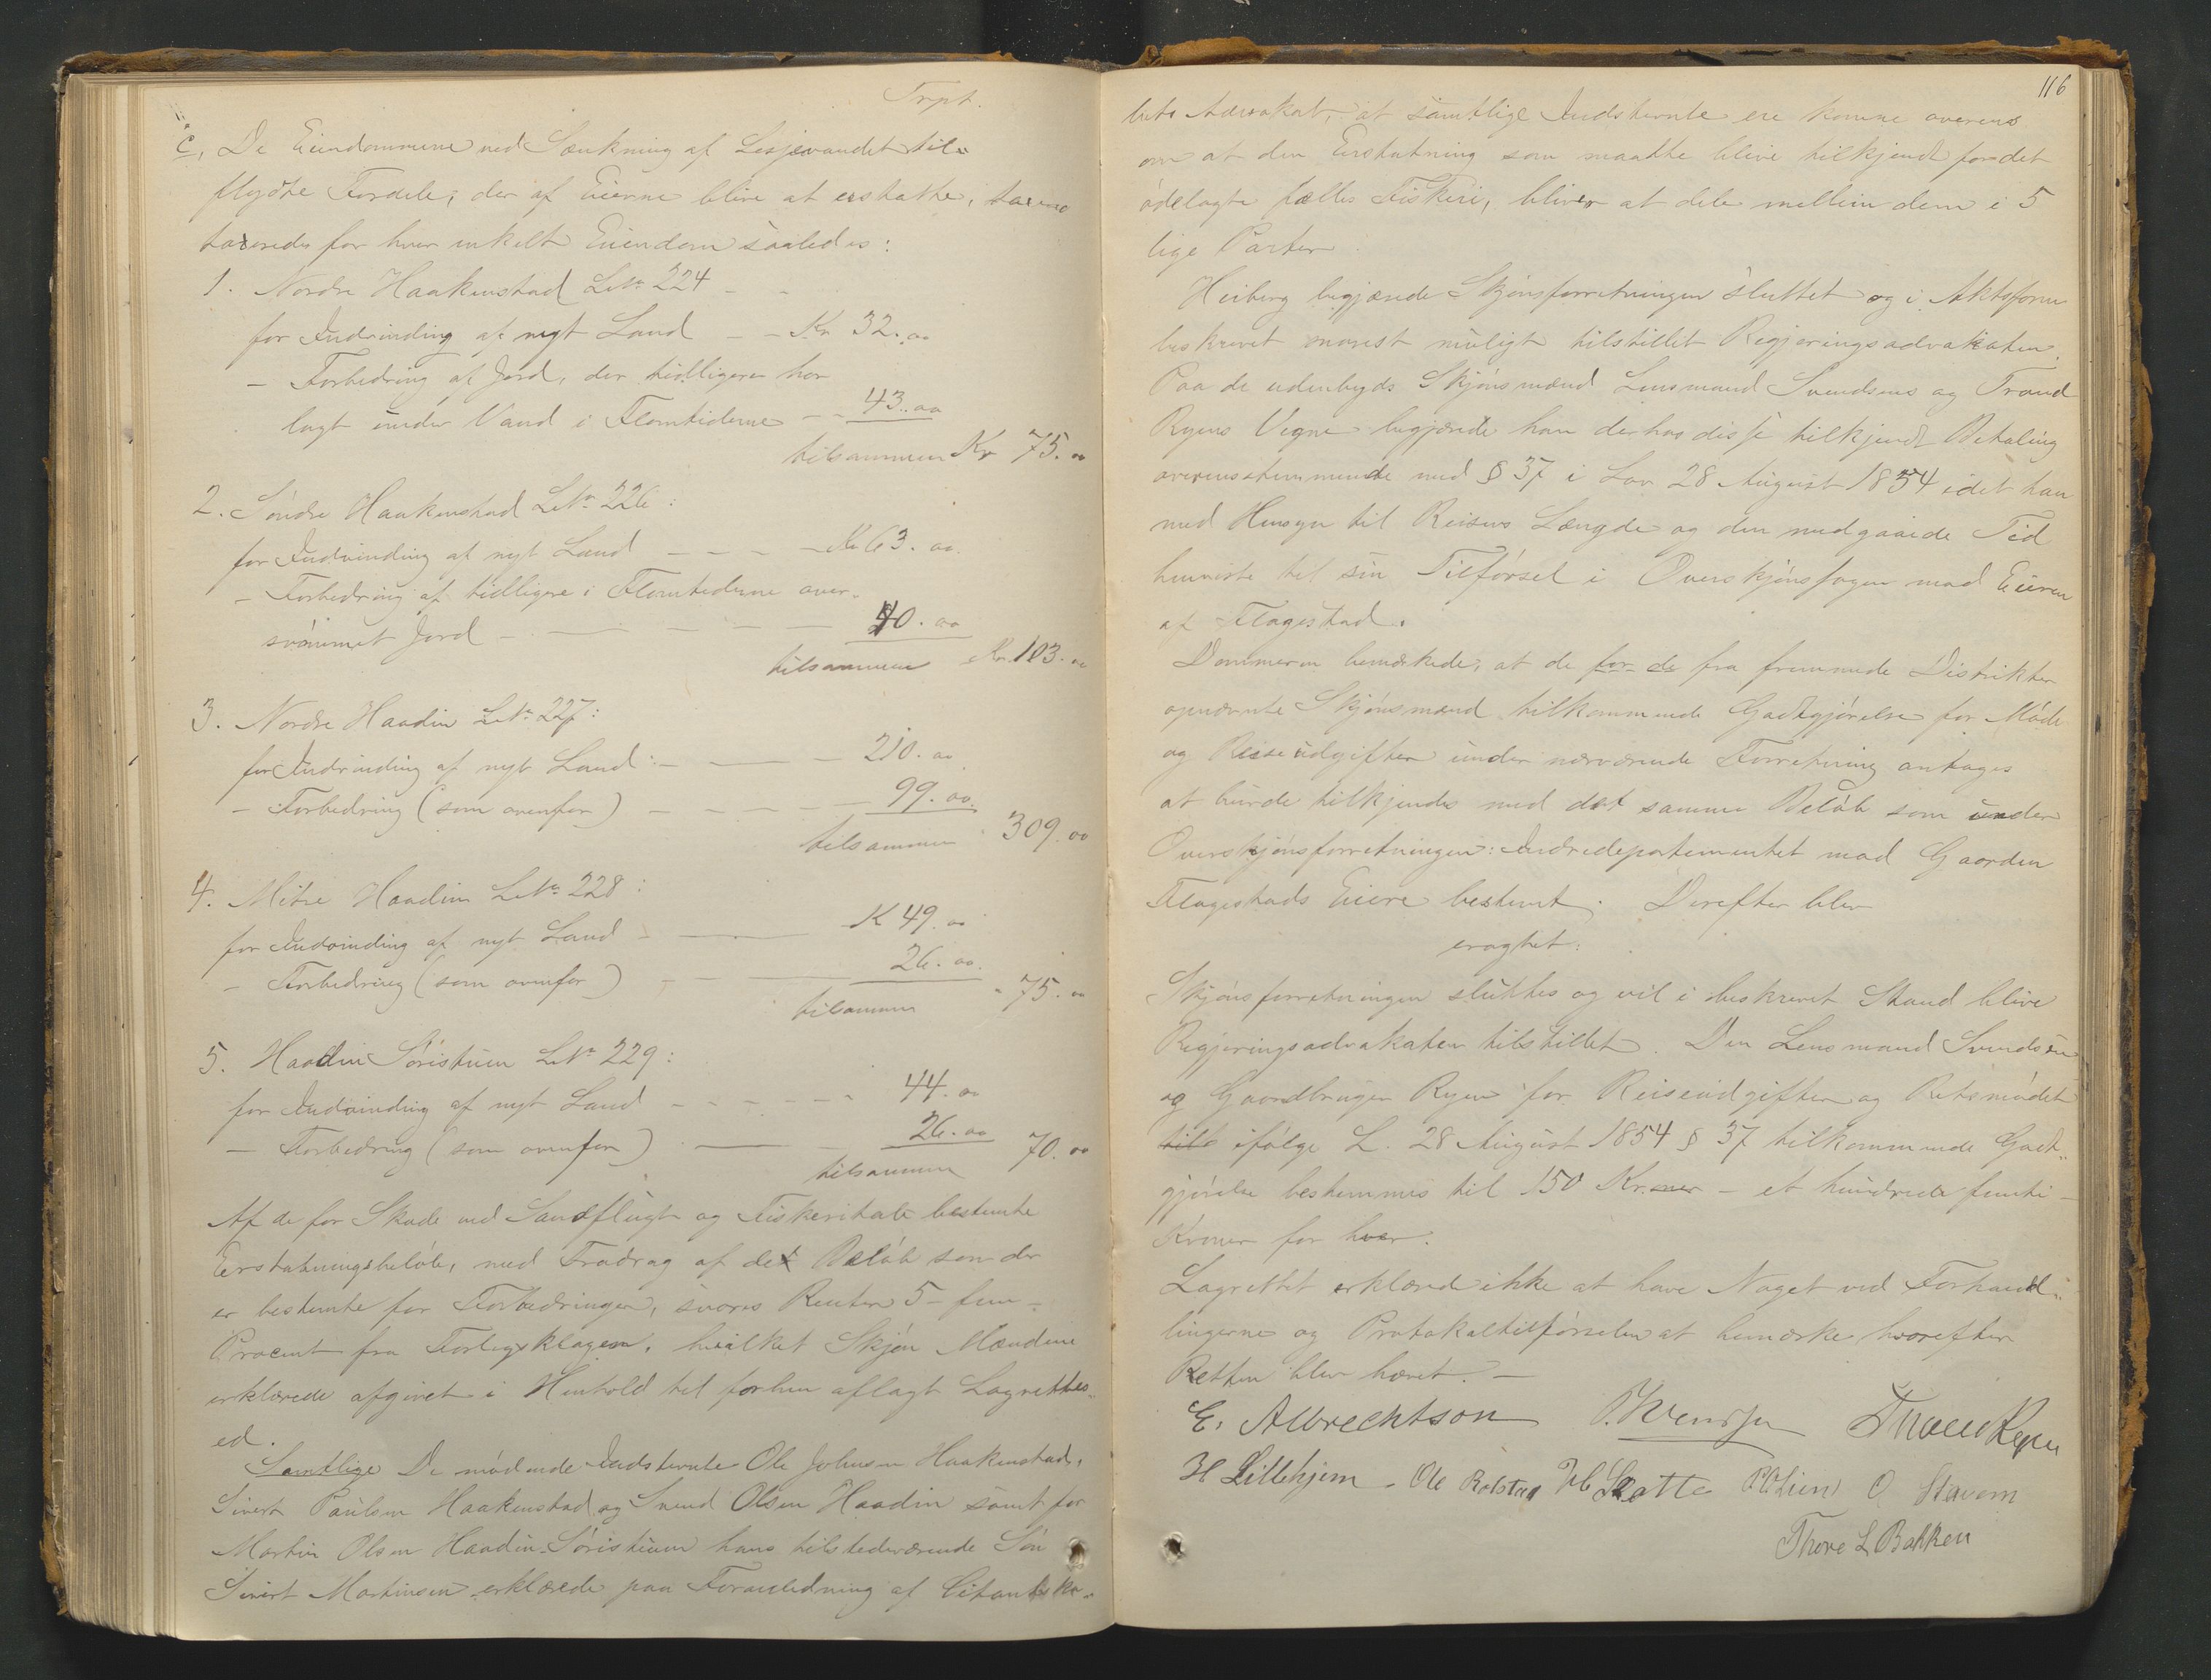 Trpt.
c, De Eiendommene ved Sænkning af Lesjevandet til-
flydte Fordele, der af Eierne blive at erstatte,
taxeredes for hver enkelt Eiendom saaledes:
1. Nordre Haakenstad LNr. 224 - -
for Indvinding af nyt Land - - Kr 32.00
- Forbedring af Jord, der tidligere har
lagt under Vand i Flomtiderne - - 43.00
tilsammen Kr 75.00
2. Søndre Haakenstad LNr. 226:
for Indvinding af nyt Land - - - - Kr 63.00
- Forbedring af tidligere i Flomtiderne over-
svømmet Jord - - - - - 40.00
tilsammen Kr. 103.00
3. Nordre Haadin LNr. 227:
for Indvinding af nyt Land: - - - 210.00
- Forbedring (som ovenfor) - - - - 99.00
tilsammen 309.00
4. Mitre Haadin LNr. 228:
for Indvinding af nyt Land - - K 49.00
- Forbedring (som ovenfor) - - 26.00
tilsammen - 75.00
5. Haadin Søristuen LNr. 229:
for Indvinding af nyt Land - - - - - - 44.00
- Forbedring (som ovenfor) - - 26.00
tilsammen 70.00
Af de for Skade ved Sandflugt og Fiskeritab bestemte
Erstatningsbeløb, med Fradrag af det Beløb som der
er bestemte for Forbedringer, svares Renter 5 - fem -
Procent fra Forligsklagen, hvilket Skjøn Mændene
erklærede afgivet i Henhold til forhen aflagt Lagrettes-
ed.
Samtlige De mødende Indstevnte Ole Johnsen Haakenstad,
Sivert Paulsen Haakenstad og Svend Olsen Haadin samt for
Martin Olsen Haadin-Søristuen hans tilstedeværende Søn
Sivert Martinsen erklærede paa Foranledning af Citantska-
116
bets Advokat, at samtlige Indstevnte ere komne overens
om at den Erstatning som maatte blive tilkjendt for det
ødelagte fælles Fiskeri, bliver at dele mellem dem i 5
lige Parter.
Heiberg begjærede Skjønsforretningen sluttet og i Aktsform
beskrevet snarest muligt tilstillet Regjeringsadvokaten.
Paa de udenbygds Skjønsmænd Lensmand Svendsens og Trond
Ryens Vegne begjærede han derhos disse tilkjendt Betaling
overensstemmende med § 37 i Lov 28 August 1854 idet han
med Hensyn til Reisens Længde og den medgaaede Tid
henviste til sin Tilførsel i Overskjønssagen mod Eieren
af Flagestad.
Dommeren bemærkede, at de for de fra fremmede Distrikter
opnævnte Skjønsmænd tilkommende Godtgjørelse for Møde
og Reiseudgifter under nærværende Forretning antages
at burde tilkjendes med det samme Beløb som under
Overskjønsforretningen: Indredepartementet mod Gaarden
Flagestads Eiere bestemt. Derefter blev
eragtet:
Skjønsforretningen sluttes og vil i beskrevet Stand blive
Regjeringsadvokaten tilstillet. Den Lensmand Svendsen
og Gaardbruger Ryen for Reiseudgifter og Retsmødet
tilk ifølge L. 28 August 1854 § 37 tilkommende Godt-
gjørelse bestemmes til 150 Kroner - et hundrede femti -
Kroner for hver.
Lagrettet erklæred ikke at have Noget ved Forhand-
lingerne og Protokoltilførselen at bemærke hvorefter
Retten blev hævet. -
E. Albrechtson P. Svendsen Trond Ryen
H Lillehjem. Ole Rolstad Slotte P Lien O. Stavem
Thore L Bakken